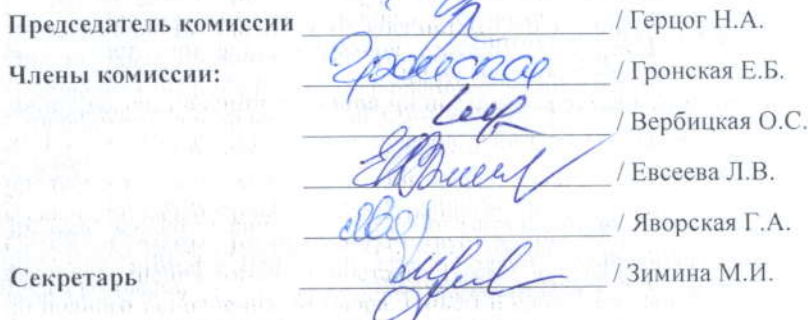 Председатель комиссии / Герцог Н.А.
Члены комиссии: / Гронская Е.Б.
/ Вербицкая О.С.
/ Евсеева Л.В.
/ Яворская Г.А.
Секретарь / Зимина М.И.